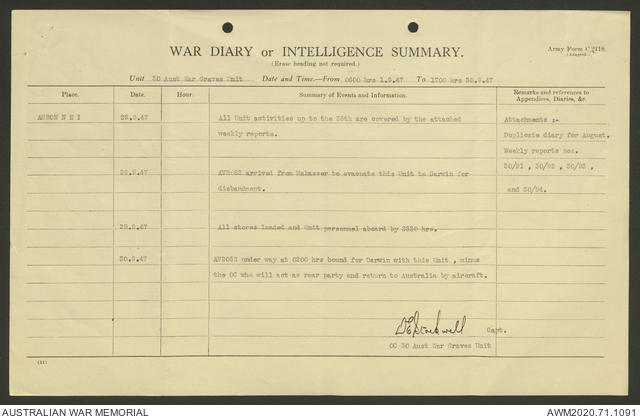 WAR DIARY or INTELLIGENCE SUMMARY.
Army Form C.2118.
(Erase heading not required.)
Unit 30 Aust War Graves Unit Date and Time.—From 0600 hrs 1.9.47 To 1700 hrs 30.9.47
Place. Date. Hour. Summary of Events and Information. Remarks and references to Appendices, Diaries, &c.
AMBON N E I 28.9.47 All Unit activities up to the 28th are covered by the attached
weekly reports.
Attachments :-
Duplicate diary for August.
Weekly reports nos.
30/91 , 30/92 , 30/93 ,
and 30/94.
arrived from Makasser to evacuate this Unit to Darwin for
disbandment.
All stores loaded and Unit personnel aboard by hrs.
30.9.47 under way at 0200 hrs bound for Darwin with this Unit , minus
the OC who will act as rear party and return to Australia by aircraft.
Capt.
OC 30 Aust War Graves Unit
AUSTRALIAN WAR MEMORIAL
AWM2020.71.1091